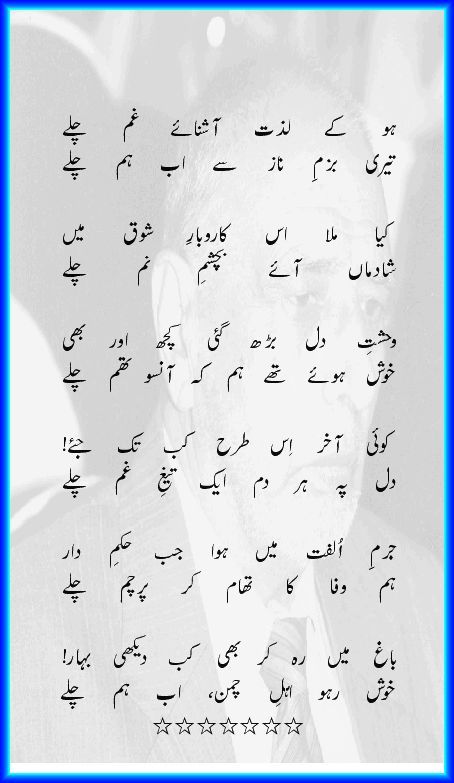 ہو کے لذت آشنائے غم چلے
تیری بزمِ ناز سے اب ہم چلے
کیا ملا اس کاروبارِ شوق میں
شادماں آئے بچشمِ نم چلے
وحشتِ دل بڑھ گئی کچھ اور بھی
خوش ہوئے تھے ہم کہ آنسو تھم چلے
کوئی آخر اِس طرح کب تک جئے!
دل پہ ہر دم ایک تیغِ غم چلے
جرمِ اُلفت میں ہوا جب حکمِ دار
ہم وفا کا تھام کر پرچم چلے
باغ میں رہ کر بھی کب دیکھی بہار!
خوش رہو اہلِ چمن، اب ہم چلے
☆☆☆☆☆☆☆